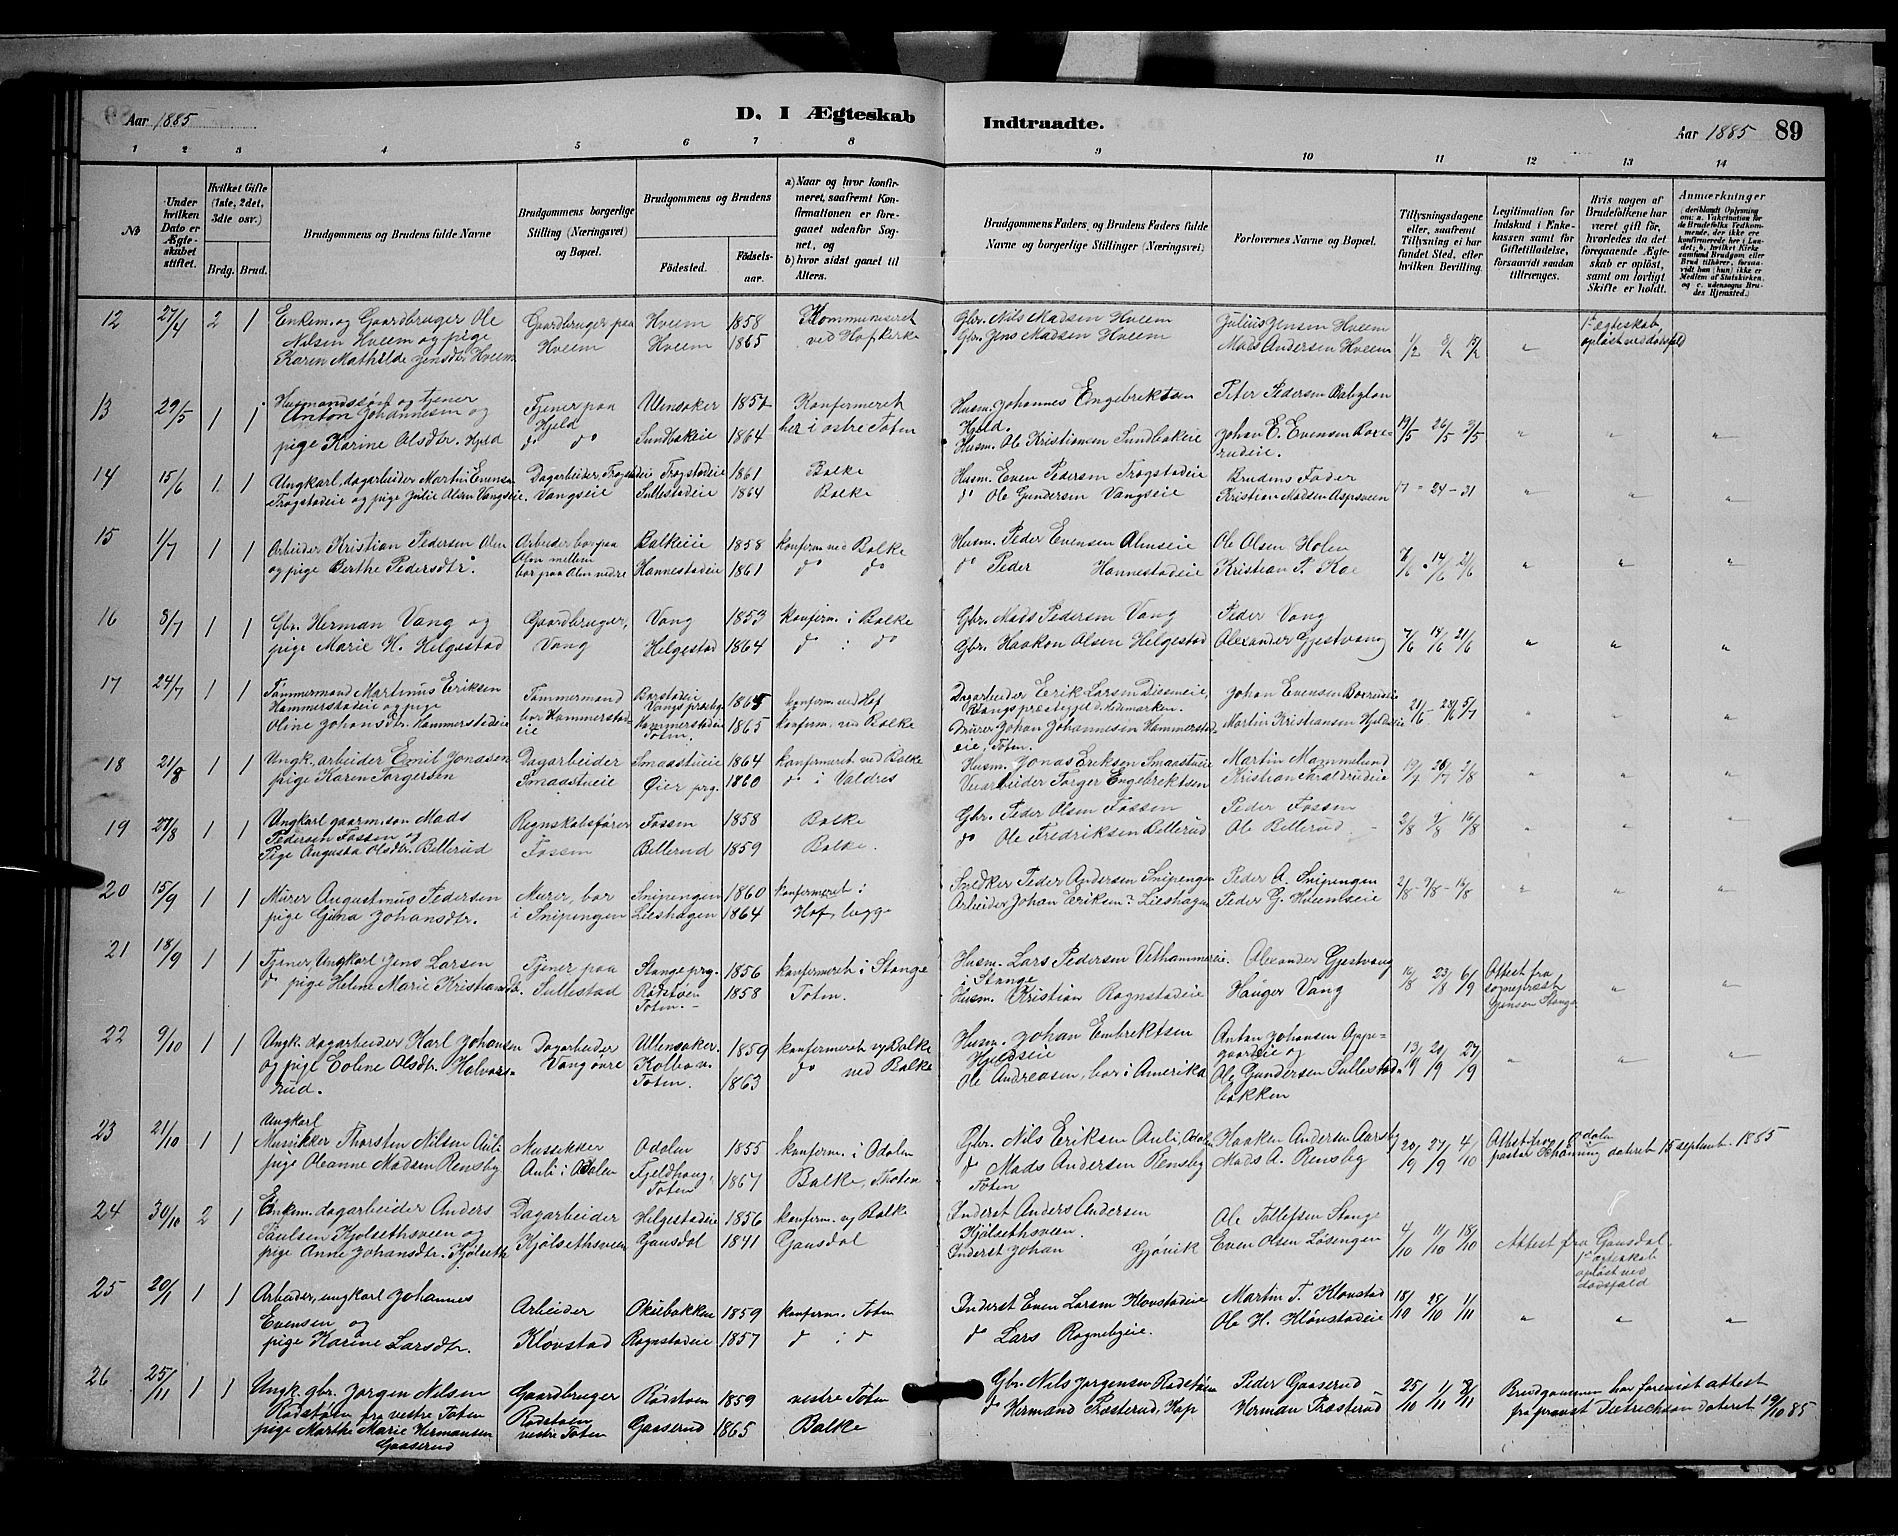 Aar 1885
D. I Ægteskab
Indtraadte.
Aar 1885 89
1 2 3 4 5 6 7 8 9 10 11 12 13 14
No
Under hvilken Dato er Ægteskabet stiftet.
Hvilket Gifte (1ste, 2det, 3die osv.)
Brdg. Brud.
Brudgommens og Brudens fulde Navne
Brudgommens borgerlige Stilling (Næringsvei) og Bopæl.
Brudgommens og Brudens
Födested.
Födselsaar.
a) Naar og hvor konfirmeret, saafremt Konfirmationen er foregaaet udenfor Sognet, og
b) hvor sidst gaaet til Alters.
Brudgommens Faders og Brudens Faders fulde Navne og borgerlige Stillinger (Næringsvei)
Forlovernes Navne og Bopæl.
Tillysningsdagene eller, saafremt Tillysning ei har fundet Sted, efter hvilken Bevilling.
Legitimation for Indskud i Enkekassen samt for Giftetilladelse, forsaavidt saadan tiltrænges.
Hvis nogen af Brudefolkene har været gift før, hvorledes da det forrgaaende Ægteskab er oplöst, samt om lovligt Skifte er holdt.
Anmærkninger
12 27/4 2 1 Enkem. og Gaardbruger Ole
Nilsen Hveem og pige
Karen Mathilde Jensdtr Hveem
Gaardbruger paa
Hveem
Hveem 1858
Hveem 1865
Kommuniseret
ved Hofkirke
Gbr. Nils Madsen Hveem
Gbr. Jens Madsen Hveem
Julius Jensen Hveem
Mads Andersen Hveem
1/2 8/2 15/2 "
1ste ægteskab,
opløst ved dødsfald
13 29/5 1 1 Husmandssøn og tjener
Anton Johannesen og
pige Karine Olsdtr. Hjeld
Tjener paa
Hjeld
do do
Ullensaker 1857
Sundbakeie 1864
Konfirmeret
her i østre Toten
Husm. Johannes Engebrektsen
Hjeld.
Husm. Ole Kristiansen Sundbakeie
Peter Pedersen Babylon
Johan E. Evensen Borerudeie.
" " "
14 15/6 1 1 Ungkarl, dagarbeider Martin Evensen
Trogstadeie og pige Julie Olsen Vangseie
Dagarbeider, Trogstadeie
Vangseie
Trogstadeie 1861
Sullestadeie 1864
Balke
Balke
Husm. Even Pedersen Trogstadeie
do Ole Gundersen Vangseie
Brudens Fader
Kristian Madsen Aspsveen
17 - 24 - 31 " " "
15 1/7 1 1 Arbeider Kristian Pedersen Alm
og pige Berthe Pedersdtr.
Arbeider bor paa
Alm mellem
bor paa Alm nedre
Balkeie 1858
Hannestadeie 1861
konfirm ved Balke
do do
Husm. Peder Evensen Almseie
do Peder Hannestadeie
Ole Olsen Holen
Kristian P. Koe
7/6 14/6 21/6 " " "
16 8/7 1 1 Gbr. Herman Vang og
pige Marie H. Helgestad
Gaardbruger,
Vang
Vang 1853
Helgestad 1864
konfirm. i Balke
do : do
Gbr. Mads Pedersen Vang
Gbr. Haakon Olsen Helgestad
Peder Vang
Alexander Gjestvang
7/6 14/6 21/6 " " "
17 24/7 1 1 Tømmermand Martinus Eriksen
Hammerstadeie og pige
Oline Johansdtr. Hammerstadeie
Tømmermand
bor Hammerstadeie
Vangs prestegj. 1865
Hammerstadeie 1865
Toten.
konfirm. ved Hof
konfirm. ved Balke
Dagarbeider Erik Larsen
Vangs prestegjeld Hedemarken.
Murer Johan Johannesen Hammerstadeie, Toten.
Johan Evensen Borrudeie
Martin Kristiansen Hjeldseie
21/6 - 28/6 5/7 " " "
18 21/8 1 1 Ungk. arbeider Emil Jonassen
pige Karen Torgersen
Dagarbeider
Smaastueie
Smaastueie 1864
Øier prg. 1860
konfirmeret ved Balke
do i Valdres
Husm. Jonas Eriksen Smaastueie
Veiarbeider Torger Engebrektsen
Martin Mammelund
Kristian Haraldrudeie
19/7 26/7 2/8 " " "
19 27/8 1 1 Ungkarl gaarm. søn Mads
Pedersen Fossen og
Pige Augusta Olsdtr. Billerud
Regnskabsfører
Fossen
Fossen 1858
Billerud 1859
Balke
Balke.
Gbr. Peder Olsen Fossen
do Ole Fredriksen Billerud
Peder Fossen
Ole Billerud
2/8 9/8 16/8 " " "
20 15/9 1 1 Murer Augustinus Pedersen
pige Gina Johansdtr.
Murer, bor
i Snipengen
Snipengen 1860
Lieshagen 1864
konfirmeret i
Hof, begge
Snedker Peder Andersen Snipengen
Arbeider Johan Eriksen Lieshagen
Peder A. Snipengen
Peder G. Hveemseie
2/8 - 9/8 - 16/8 " " "
21 18/9 1 1 Tjener, Ungkarl Jens Larsen
do pige Helene Marie Kristiansdtr.
Tjener paa
Sullestad
Stange prg. 1856
Rødstøen 1858
Toten.
konfirmeret i Stange
Toten.
Husm. Lars Pedersen Vethammereie
i Stange
Husm. Kristian Rognstadeie
Alexander Gjestvang
Hauger Vang
16/8 23/8 6/9
Attest fra
sogneprest
Jensen Stange
" "
22 9/10 1 1 Ungk. dagarbeider Karl Johansen
og pige Eoline Olsdtr. Halvorsrud.
Dagarbeider
Vang øvre
Ullensaker. 1859
Kolbo v.
Toten. 1863
konfirmeret v/ Balke
do ved Balke
Husm. Johan Embrektsen
Hjeldseie
Ole Andreasen, bor i Amerika
Anton Johansen Appegaardeie og
Ole Gundersen Sullestadbakken
13/9 20/9 27/9 " " "
23 21/10 1 1 Ungkarl
Mussikker Thorsten Nilsen Auli
pige Oleanne Madsen Rensby
Mussikker
Auli i Odalen
Odalen 1855
Fjeldhaug, 1867
Toten
konfirm. i Odalen
Balke, Thoten
Gbr. Nils Eriksen Auli, Odalen
do Mads Andersen Rensby
Toten
Haaken Andersen Aarsby
Mads A. Rensby
20/9 27/9 4/10
Attest fra Odalen
pastor Schanning dateret 15 september 1885
24 30/10 2 1 Enkem. dagarbeider Anders
Paulsen Kjølsethsveen og
pige Anne Johansdtr. Kjølseth
Dagarbeider
Kjølsethsveen
Helgestadeie 1856
Gausdal 1841
konfirm. v/ Balke
Gausdal
Inderst Anders Andersen
Kjølsethsveen.
Inderst Johan Gjøvik
Ole Tollefsen Stange
Even Olsen Løsengen
4/10 11/10 18/10
Attest fra Gausdal.
1ste ægteskab
opløst ved
dødsfald
25 20/11 1 1 Arbeider, ungkarl Johannes
Evensen og
pige Karine Larsdtr.
Arbeider
Kløvstad
Økisbakken 1859
Rognstadeie 1857
konfirm. Toten
do : do
Inderst Even Larsen Klovstadeie
do Lars Rognebyeie.
Martin T. Klovstad
Ole H. Kløvstadeie
18/10 25/10 1/11 " " "
26 25/11 1 1 Ungk. gbr. Jørgen Nilsen
Rødstøen fra vestre Toten
pige Marthe Marie Hermansen
Gaaserud
Gaardbruger
Rødstøen
vestre Toten
Rødstøen 1859
Gaaserud 1865
vestre Toten
Balke
Gbr. Nils Jørgensen Rødstøen
do Hermand Trøsterud, Hop
Peder Gaaserud
Herman Trøsterud
25/10 1/11 8/11
Brudgommen har forevist attest
fra provst Dietrichson dateret 19/10 85